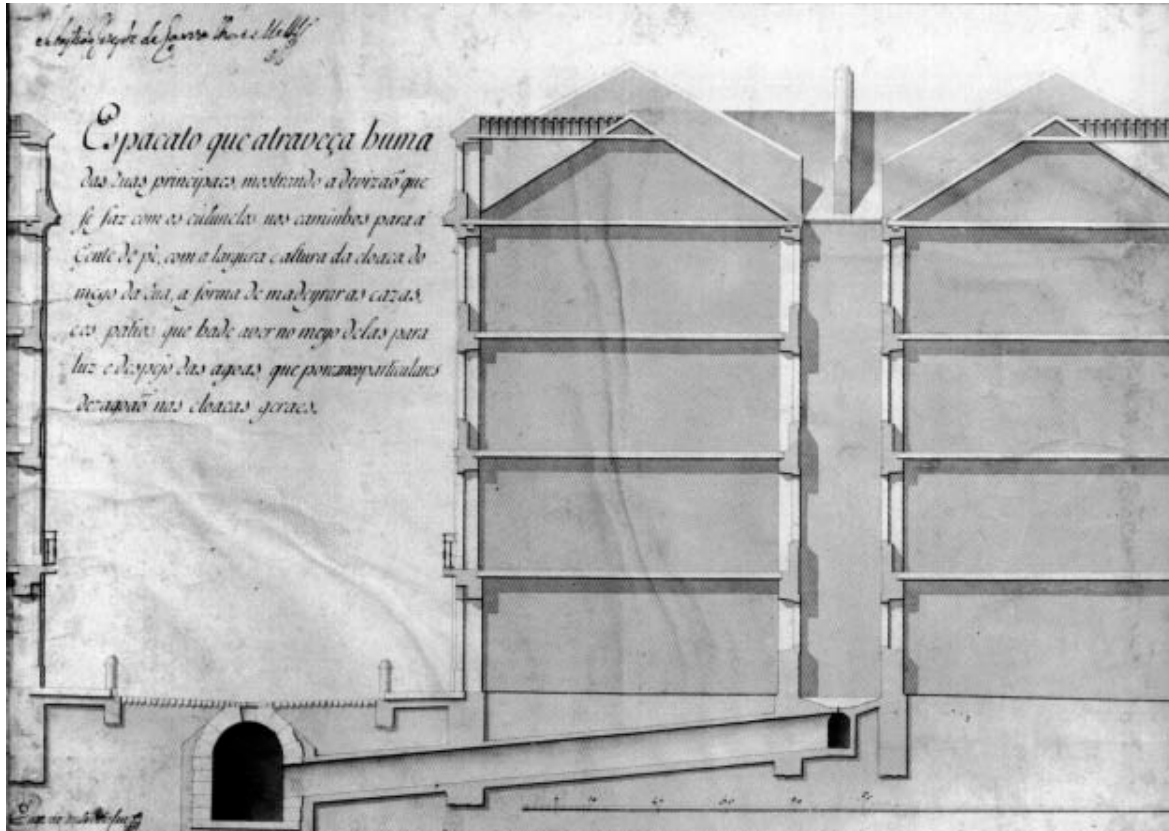 de Carvalho e Mello
Espacato que atraveça huma
das ruas principaes, mostrando a devizaõ que
se faz com os colunelos nos caminhos para a
Gente de pè, com a largura e altura da cloaca do
meyo da rua, a forma de madeyrar as cazas,
e os patios que hade aver no meyo delas para
luz e despejo das agoas, que por canos particulares
dezagoaõ nas cloacas geraes.